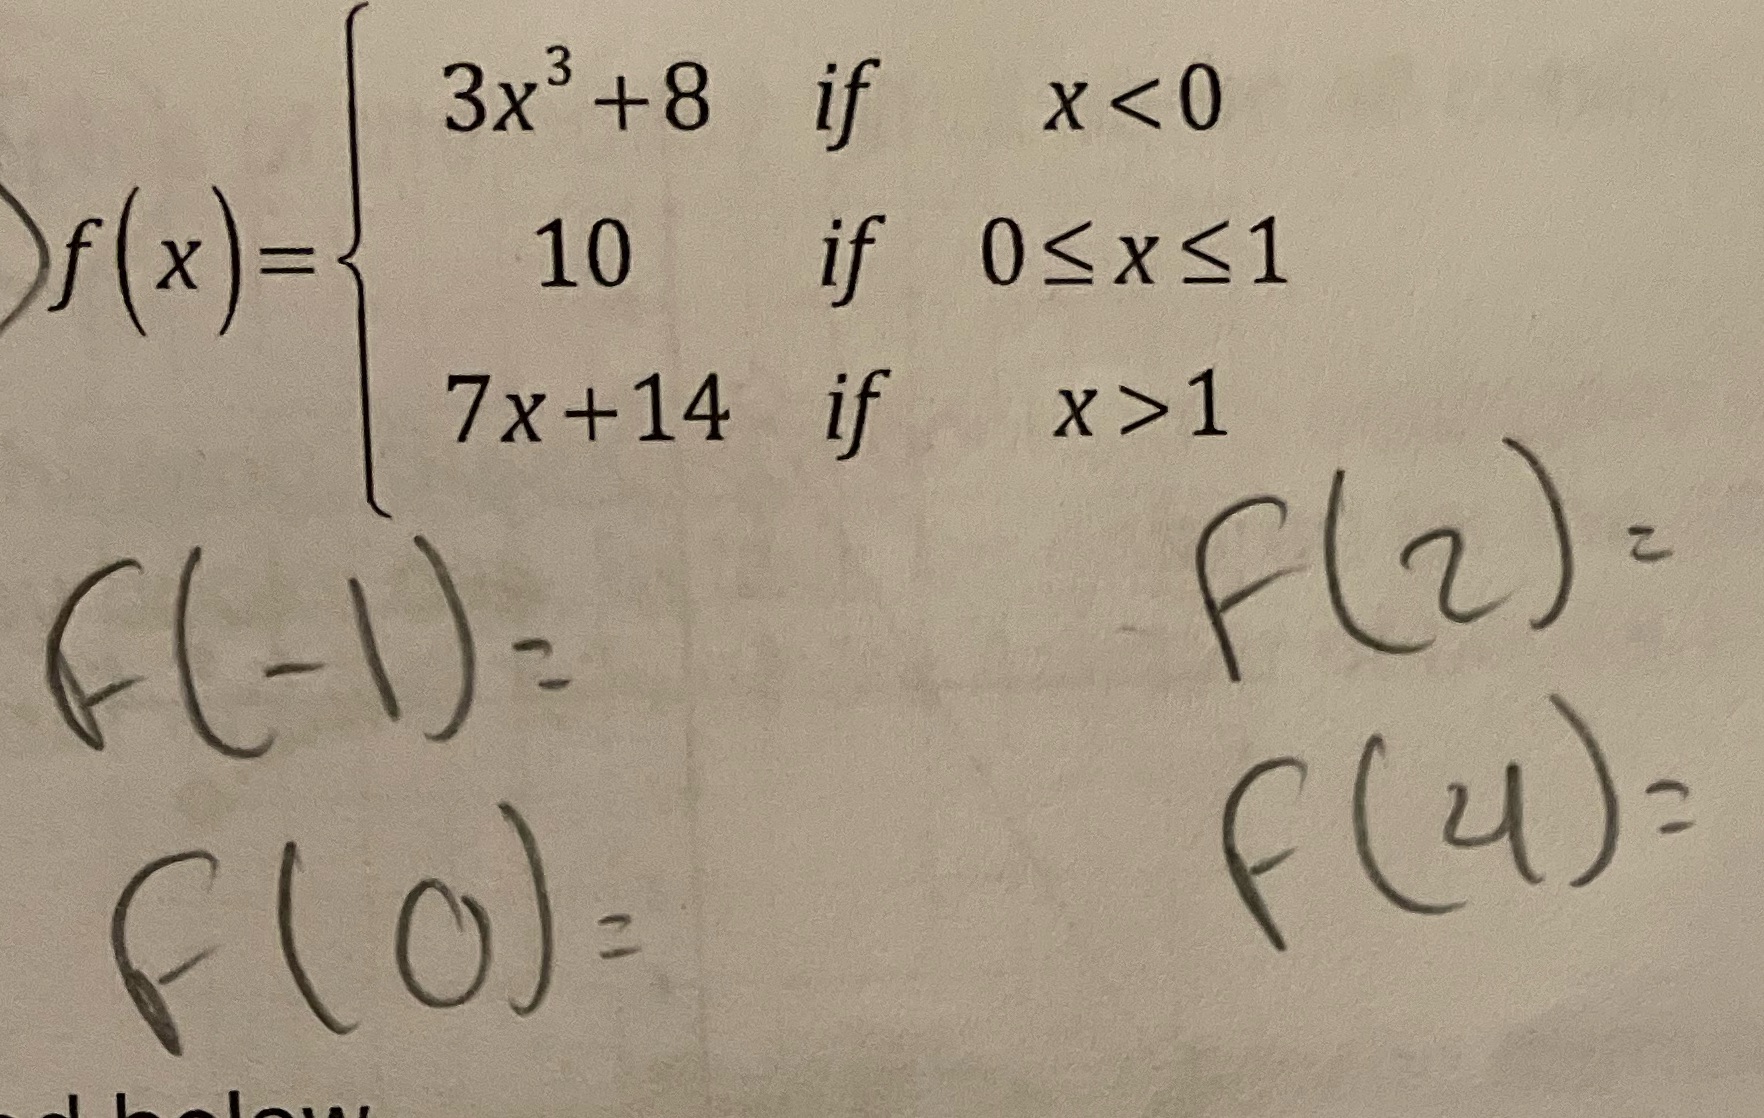 3x³+8 if x<0
f(x)= 10 if 0≤x≤1
7x+14 if x>1
F(-1)=
F(2)=
F(0)=
F(4)=
below